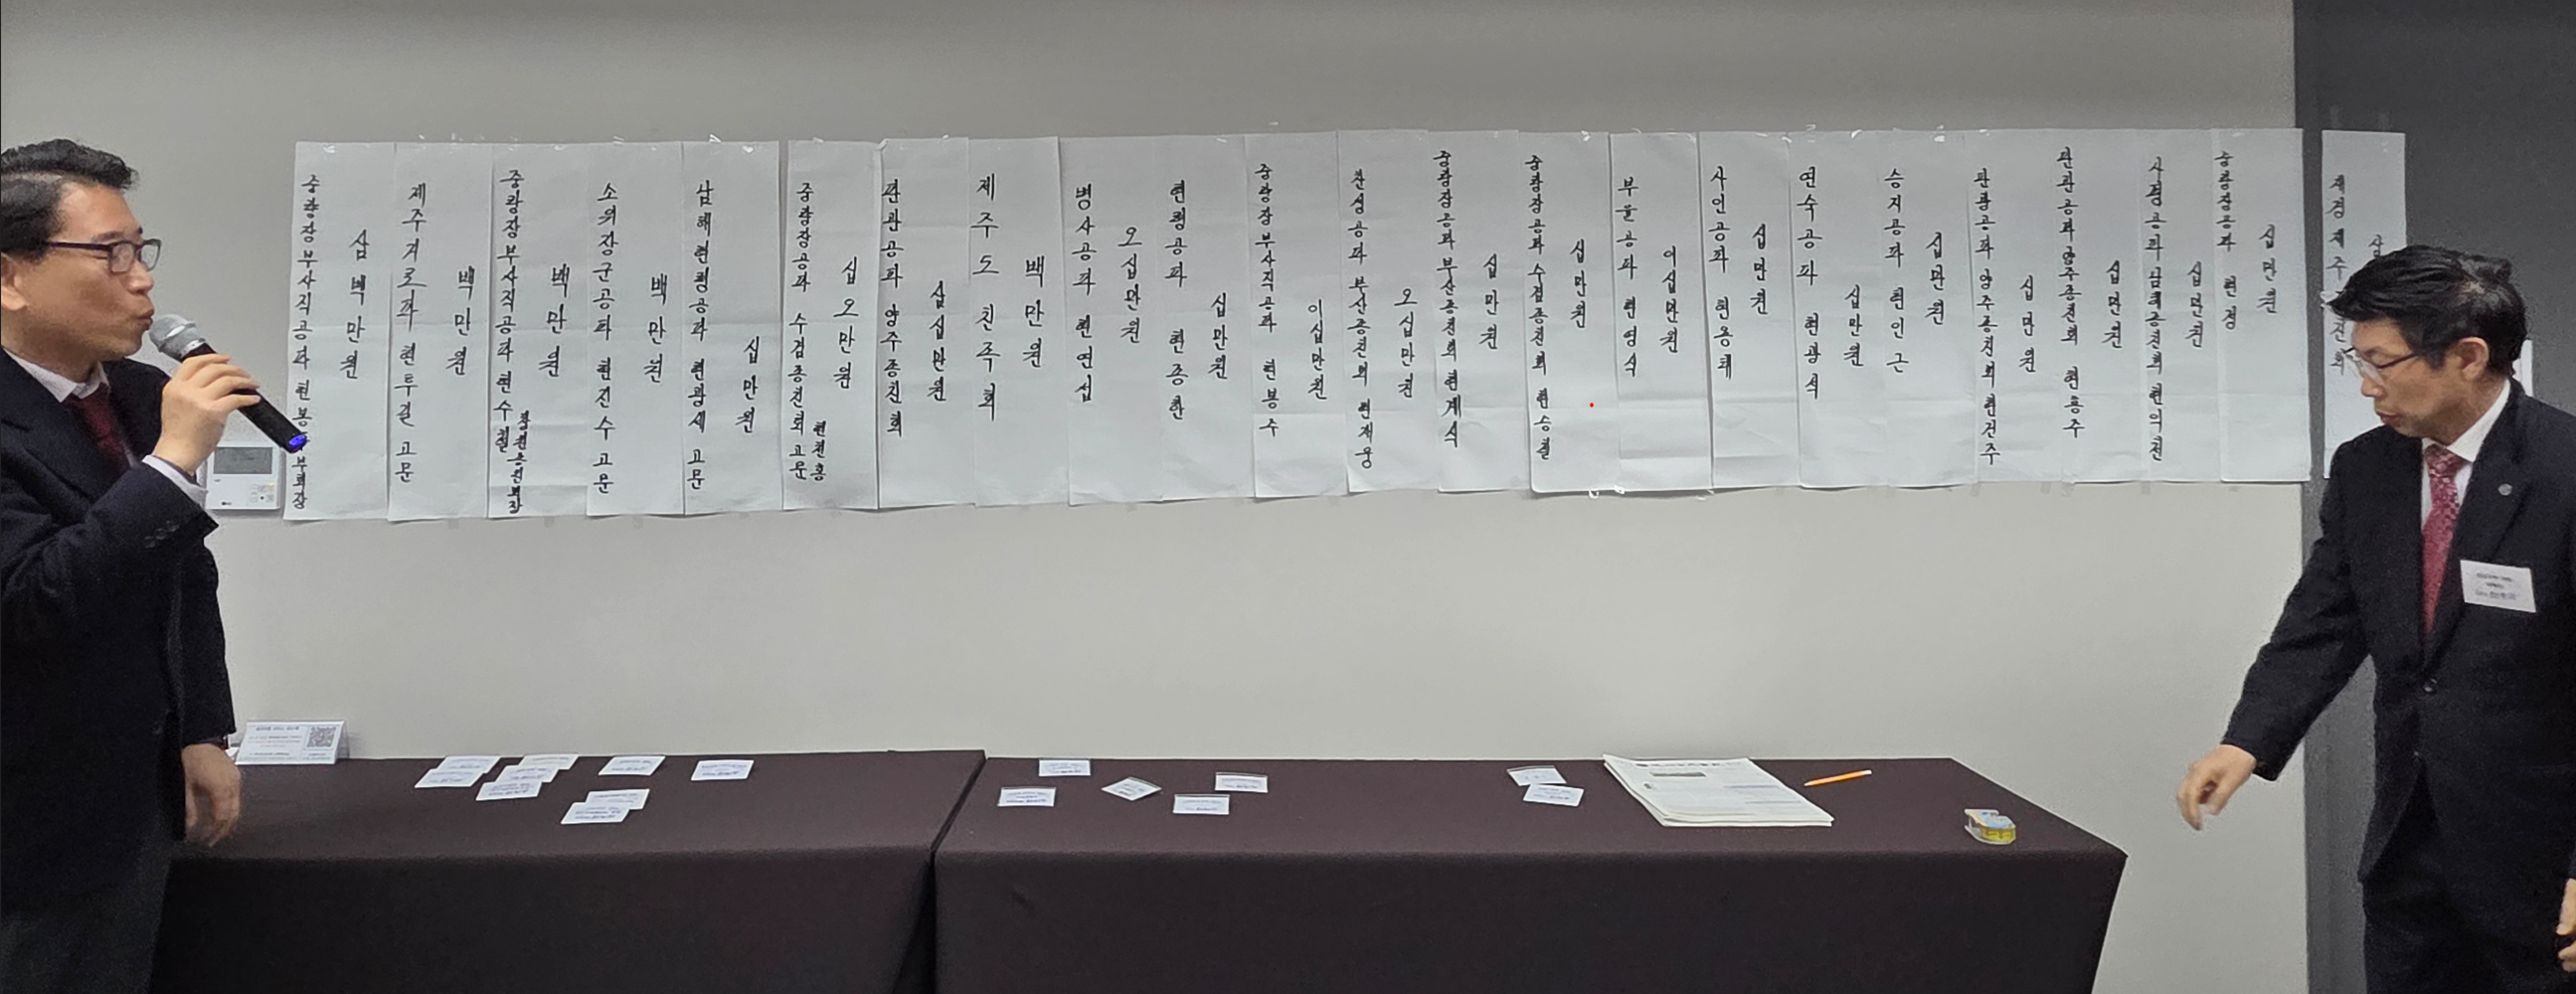 중랑장부사직공파 현봉 부회장
삼백만원
제주거로파 현투걸 고문
백만원
중랑장부사직공파 현수철
장헌종원회장
백만원
소의장군공파 현진수 고문
백만원
남해현령공파 현광세 고문
십만원
중랑장공파 수겸종친회 고문
현천홍
십오만원
판관공파 양주종친회
삼십만원
제주도친족회
백만원
병사공파 현연섭
오십만원
현령공파 현종한
십만원
중랑장부사직공파 현봉수
이십만원
찬성공파 부산종친회 현재웅
오십만원
중랑장공파 부산종친회 현계석
십만원
중랑장공파 수겸종친회 현승철
십만원
부윤공파 현영식
이십만원
사인공파 현용태
십만원
연숙공파 현광석
십만원
승지공파 현인근
십만원
판관공파 양주종친회 현건주
십만원
판관공파양주종친회 현용주
십만원
사정공파남해종친회 현의전
십만원
중랑장공파 현정
십만원
재경제주 친회